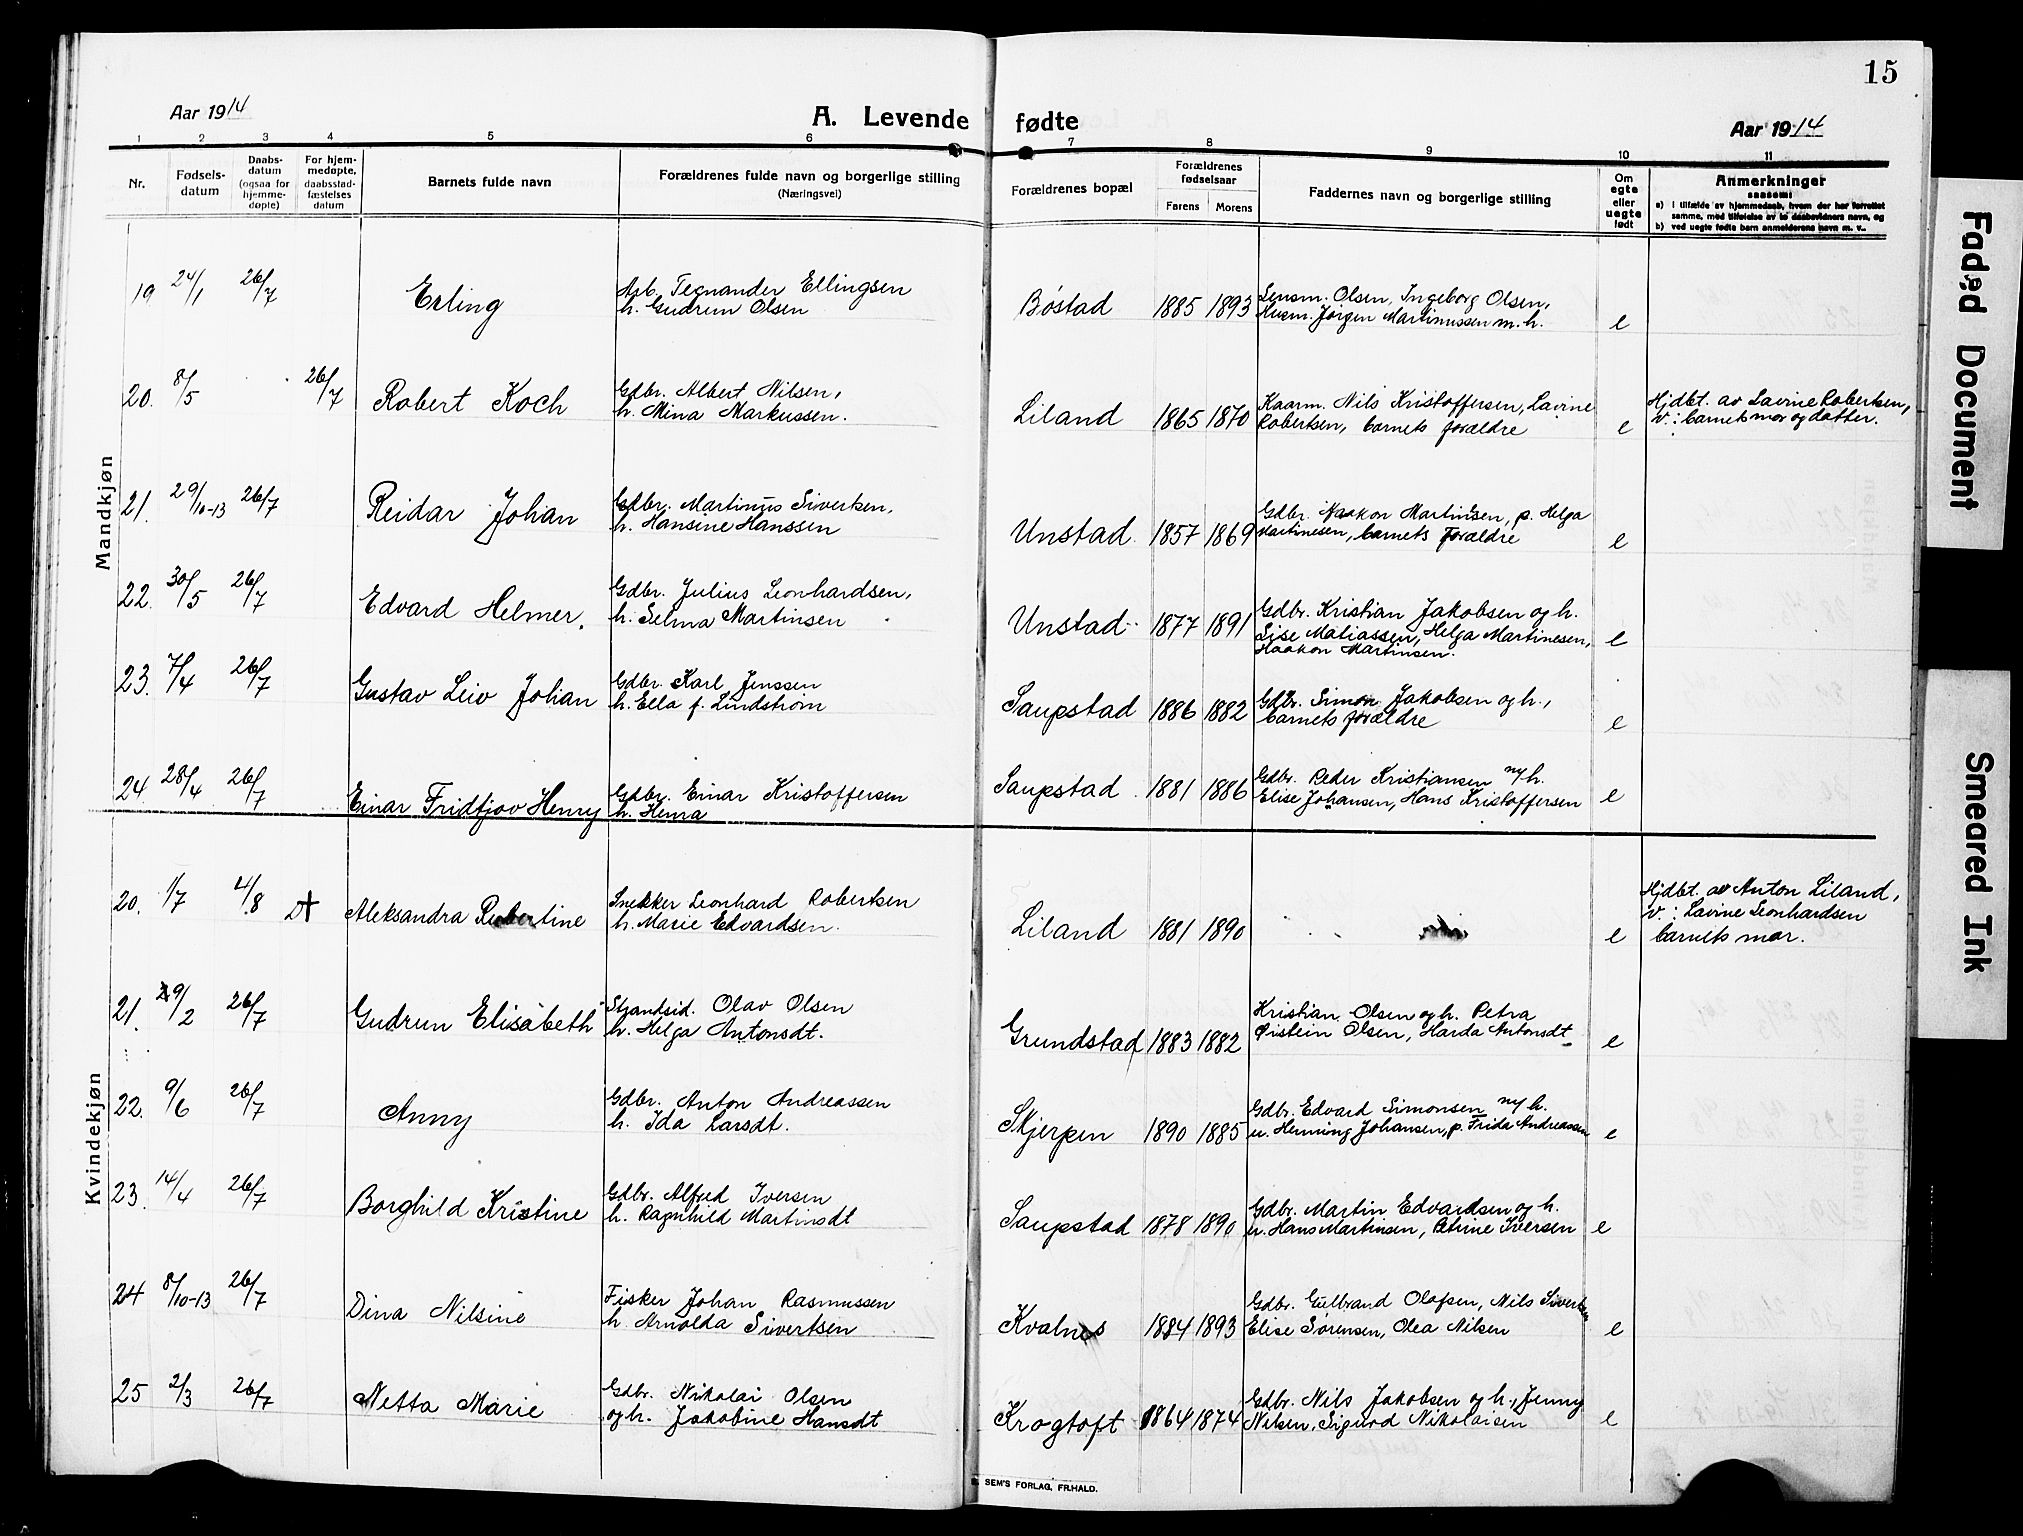 15
Aar 1914
A. Levende fødte
Aar 1914
1 2 3 4 5 6 7 8 9 10 11
Nr.
Fødsels-
datum
Daabs-
datum
(ogsaa for
hjemme-
døpte)
For hjem-
medøpte,
daabsstad-
fæstelses
datum
Barnets fulde navn
Forældrenes fulde navn og borgerlige stilling
(Næringsvei)
Forældrenes bopæl
Forældrenes
fødselsaar
Farens Morens
Faddernes navn og borgerlige stilling
Om
egte
eller
uegte
født
Anmerkninger
saasom:
a) i tilfælde av hjemmedaab, hvem der har forrettet
samme, med tilføielse av to daabsvidners navn, og
b) ved uegte fødte barn anmelderens navn m. v..
Mandkjøn
19 24/1 26/7 Erling
Arb. Tegnander Ellingsen
h. Gudrun Olsen
Bøstad 1885 1893
Lensm. Olsen, Ingeborg Olsen,
Husm. Jørgen Martinussen m. h.
e
20. 8/5 26/7 Robert Koch
Gdbr. Albert Nilsen,
h. Mina Markussen.
Liland 1865 1870
Kaarm. Nils Kristoffersen, Lavine
Robertsen, barnets forældre
e
Hjdbt. av Lavine Robertsen,
v.: barnets mor og datter.
21. 29/10-13 26/7 Reidar Johan
Gdbr. Martinus Sivertsen,
h. Hansine Hanssen
Unstad. 1857 1869
Gdbr. Haakon Martinsen, p. Helga
Martinesen, barnets forældre
e
22. 30/5 26/7 Edvard Helmer.
Gdbr. Julius Leonhardsen,
h. Selma Martinsen
Unstad 1877 1891
Gdbr. Kristian Jakobsen og h.
Lise Matiassen, Helga Martinesen,
Haakon Martinsen.
e
23. 7/4 26/7 Gustav Leiv Johan
Gdbr. Karl Jenssen
h. Ella f. Lindstrøm
Saupstad 1886 1882
Gdbr. Simon Jakobsen og h.,
barnets forældre
e
24 28/4 26/7 Einar Fridtjov Henry
Gdbr. Einar Kristoffersen
h. Hema
Saupstad. 1881 1886
Gdbr. Peder Kristiansen m/h.
Elise Johansen, Hans Kristoffersen
e
Kvindekjøn
20. 1/7 4/8 Aleksandra Robertine
Snekker Leonhard Robertsen
h. Marie Edvardsen.
Liland 1881 1890
e
Hjdbt. av Anton Liland,
v.: Lavine Leonhardsen
barnets mor.
21. 29/2 26/7 Gudrun Elisabeth
Strandsid. Olav Olsen
h. Helga Antonsdt.
Grundstad 1883 1882
Kristian Olsen og h. Petra
Øistein Olsen, Harda Antonsdt
e
22. 9/6 26/7 Anny
Gdbr. Anton Andreassen
h. Ida Larsdt.
Skjerpen 1890 1885
Gdbr. Edvard Simonsen m/h.
u. Henning Johansen, p. Frida Andreassen
e
23. 14/4 26/7 Borghild Kristine
Gdbr. Alfred Iversen
h. Ragnhild Martinsdt
Saupstad 1878 1890
Gdbr. Martin Edvardsen og h.
u. Hans Martinsen, Petrine Iversen
e
24 8/10-13 26/7 Dina Nilsine
Fisker Johan Rasmussen
h. Arnolda Sivertsen
Kvalnes 1884 1893
Gdbr. Gulbrand Olafsen, Nils Sivertsen
Elise Sørensen, Olea Nilsen
e
25 2/3 26/7 Netta Marie
Gdbr. Nikolai Olsen
og h. Jakobine Hansdt
Krogtoft 1864 1874
Gdbr. Nils Jakobsen og h., Jenny
Nilsen, Sigurd Nikolaisen
e
SEM'S FORLAG, FR.HALD.
Faded Document
Smeared Ink